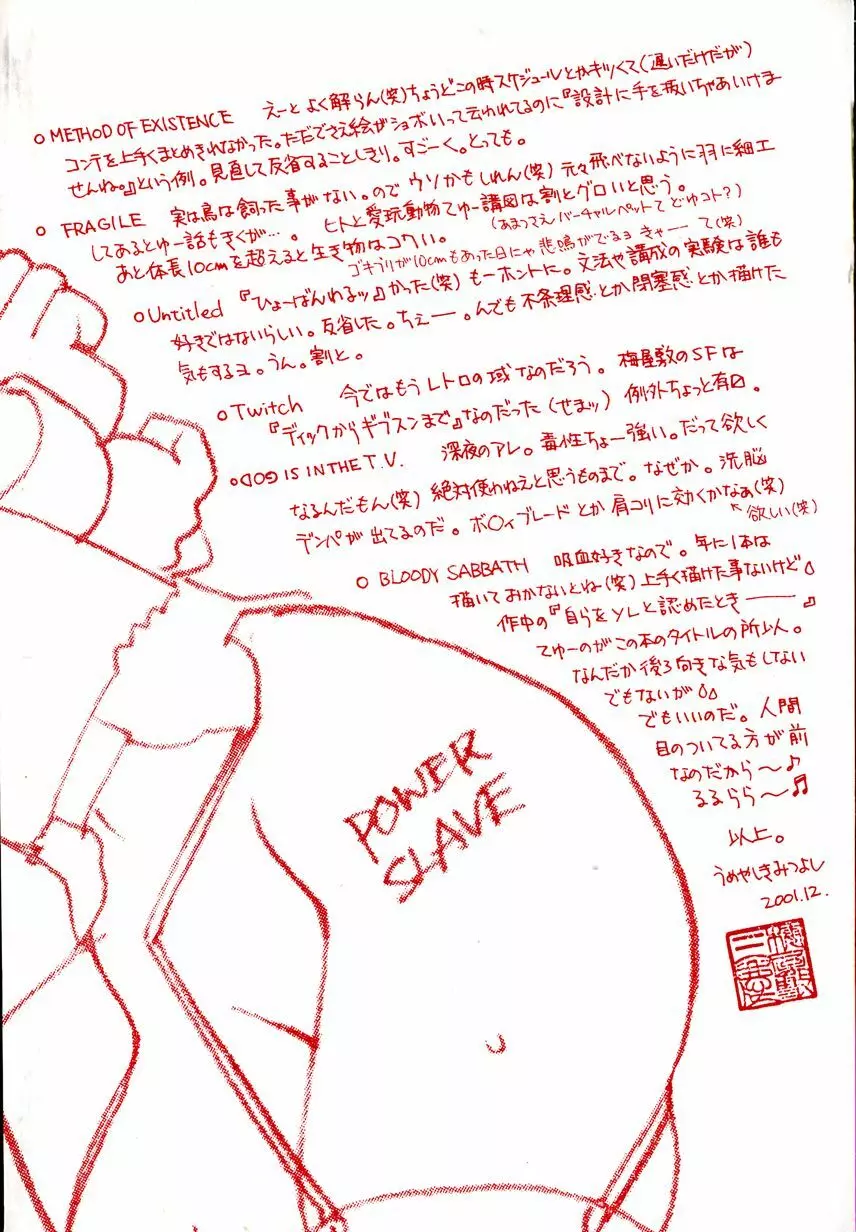 ○ METHOD OF EXISTENCE えーと よく解らん(笑)ちょうどこの時スケジュールとかキツくて(遅いだけだが)
コンテを上手くまとめきれなかった。ただでさえ絵がショボいって云われてるのに『設計に手を抜いちゃあいけま
せんね。』という例。見直して反省することしきり。すごーく。とっても。
○ FRAGILE 実は鳥は飼った事がない。ので ウソかもしれん(笑) 元々飛べないように羽に細工
してあるとゆー話もきくが…。 ヒトと愛玩動物てゆー講図は割とグロいと思う。
(あまつさえバーチャルペットて どゆコト?)
あと体長10cmを超えると生き物はコワい。
ゴキブリが10cmもあった日にゃ 悲鳴がでるヨ きゃーー て(笑)
○ Untitled 『ひょーばんわるッ』かった(笑)もーホントに。文法や講成の実験は誰も
好きではないらしい。反省した。ちぇー―。んでも不条理感とか閉塞感とか描けた
気もするヨ。うん。割と。
○ Twitch 今ではもうレトロの域なのだろう。梅屋敷のSFは
『ディックからギブスンまで』なのだった(せまッ) 例外ちょっと有り。
○ DOG IS IN THE T.V. 深夜のアレ。毒性ちょー強い。だって欲しく
なるんだもん(笑) 絶対使わねえと思うものまで。なぜか。洗脳
デンパが出てるのだ。ボ○ィブレードとか肩コリに効くかなぁ(笑)
↖欲しい(笑)
○ BLOODY SABBATH 吸血好きなので。年に1本は
描いておかないとね(笑)上手く描けた事ないけど
作中の『自らをyLと認めたとき―――』
てゆーのがこの本のタイトルの所以。
なんだか後ろ向きな気もしない
でもないが
でもいいのだ。人間
目のついてる方が前
なのだから〜♪
るるらら〜♬
以上。
うめやしきみつよし
2001.12.
POWER
SLAVE